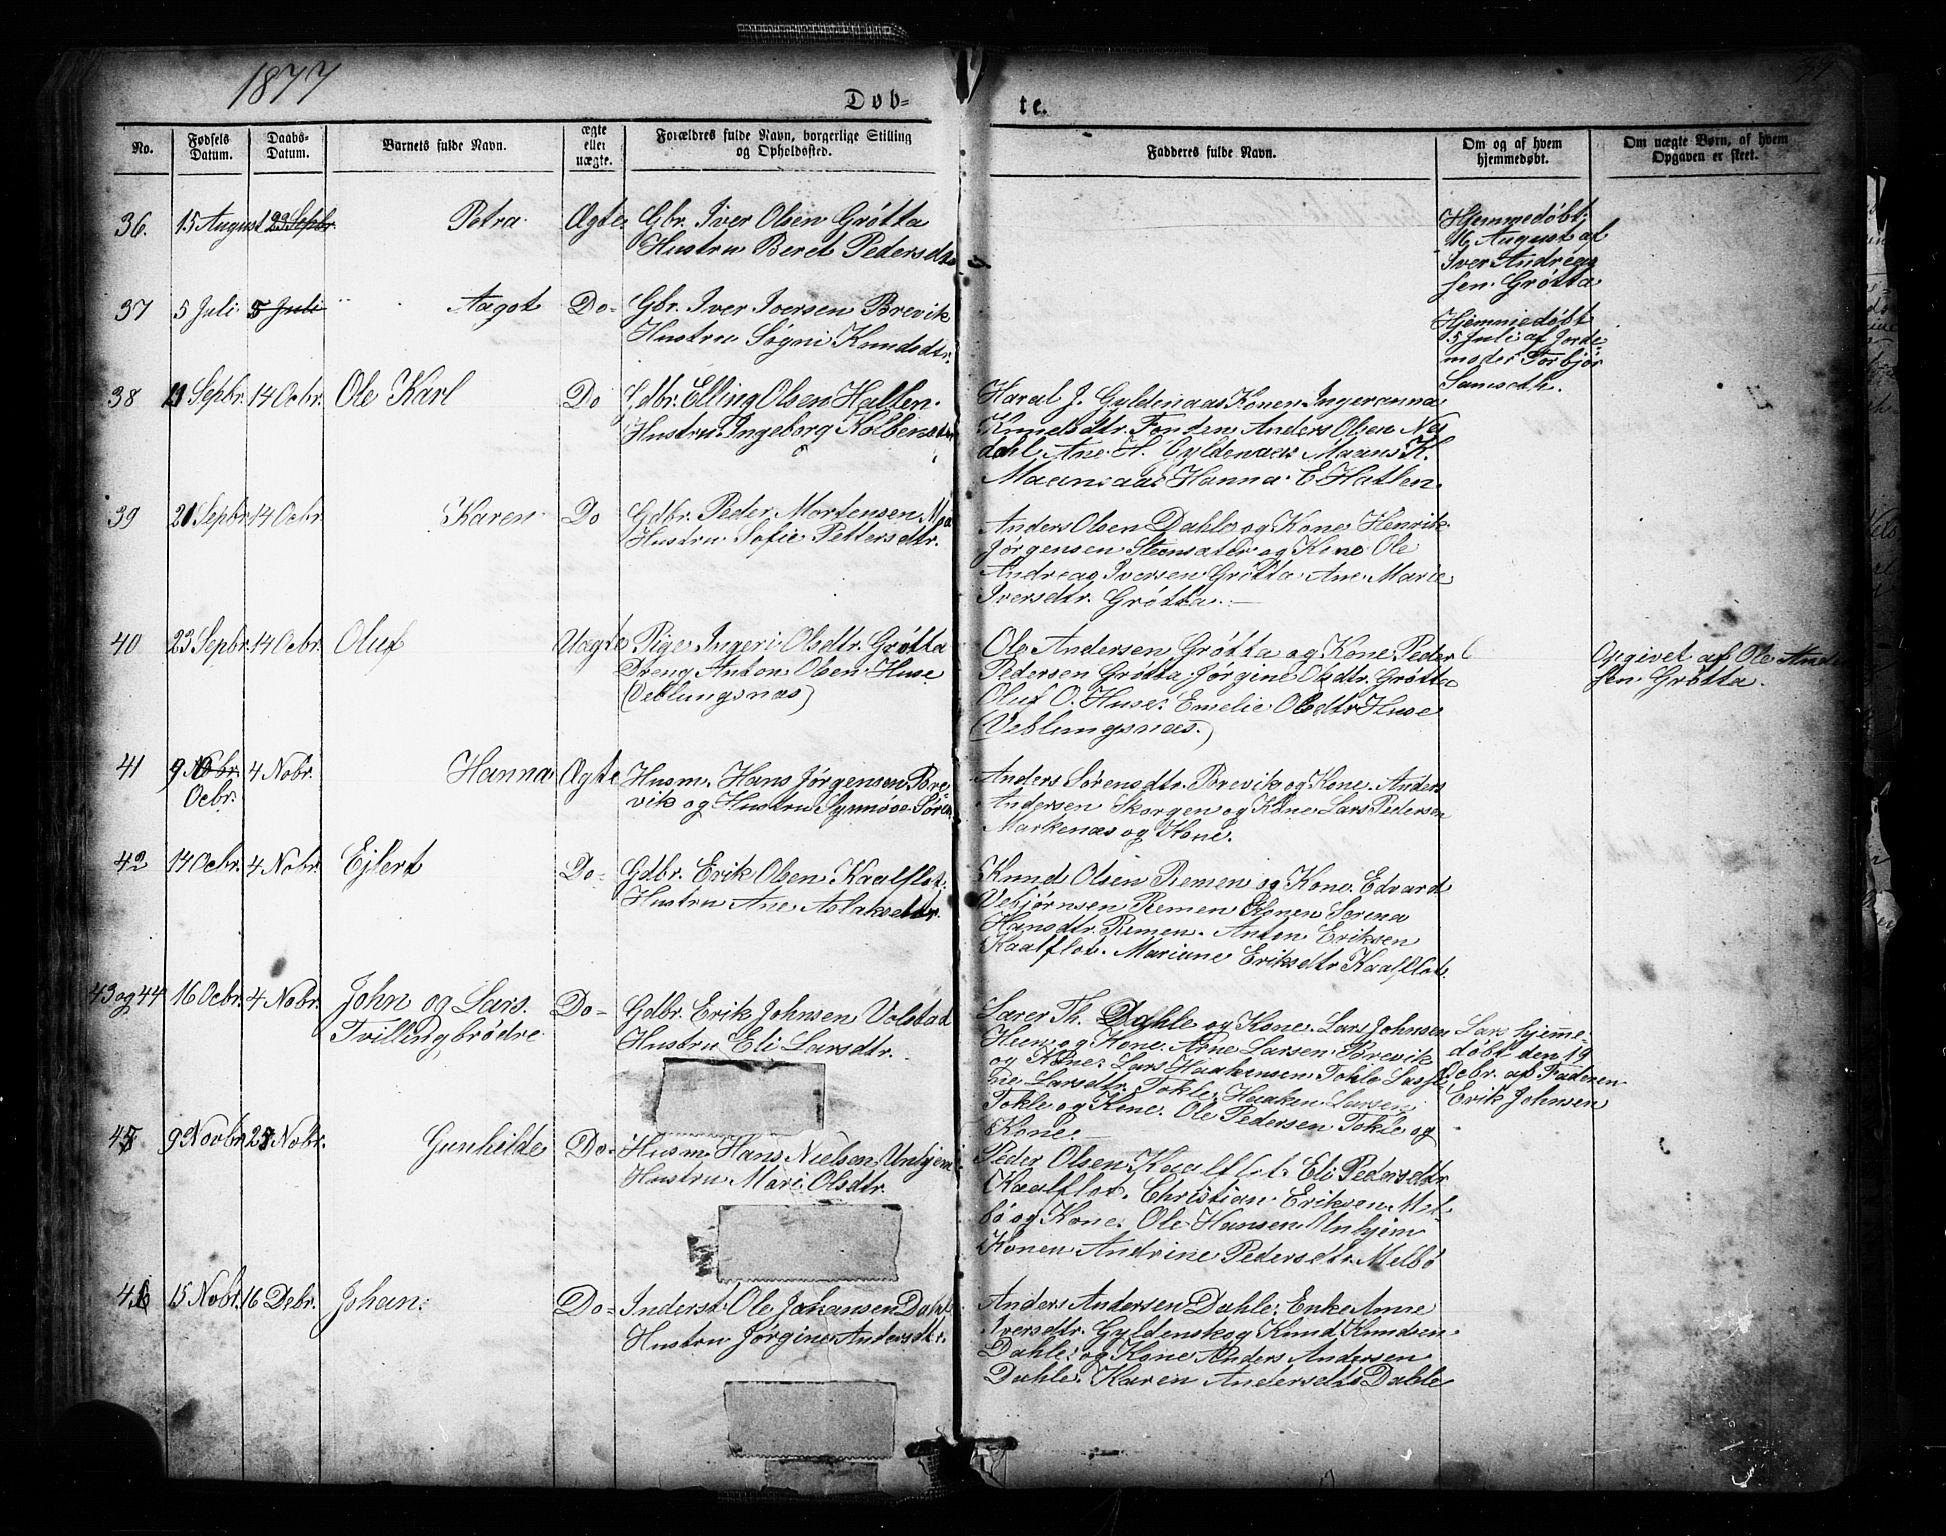 1877
Døb=
te.
No.
Fødsels Datum.
Daabs-Datum.
Barnets fulde Navn.
ægte eller uægte.
Forældres fulde Navn, borgerlige Stilling og Opholdssted.
Fadderes fulde Navn.
Om og af hvem hjemmedøbt.
Om uægte Børn, af hvem Opgaven er skeet.
36. 15 August 23 Sepbr. Petra. Ægte.
Gbr. Iver Olsen Grøtta
Hustru Beret Pedersdtr
Hjemmedøbt
16 August af
Iver Andreas
sen Grøtta
37 5 Juli. 5 Juli Aagot Do=
Gbr. Iver Iversen Brevik
Hustru Søgni Knudsdtr.
Hjemmedøbt
5 Juli af Jorde-
moder Torbjør
Samseth.
38 Sepbr. 14 Ocbr. Ole Karl Do
Gdbr. Elling Olsen Hatlen.
Hustru Ingeborg Kolbens
Haral J. Gyldenaas Konen Ingeranna
Knudsdtr. Fonden Anders Olsen Ne
dahl Ane H. Gyldenaas Maans K.
Maansaas Hanna E Hatlen.
39 21 Sepbr 14 Ocbr. Karen Do
Gdbr. Peder Mortensen Moa
Hustru Sofie Pettersdtr.
Anders Olsen Dahle og Kone Henrik
Jørgensen Steensæter og Kone Ole
Andreas Iversen Grøtta Ane Marie
Iversdtr. Grøtta.
40 23 Sepbr. 14 Ocbr. Oluf Uægte
Pige Ingeri Olsdtr. Grøtta
Dreng Anton Olsen Huse
(Veblungsnæs)
Ole Andersen Grøtta og Kone Peder
Pedersen Grøtta Jørgine Olsdtr. Grøtta
Oluf O. Huse. Emelie Olsdtr Huse
(Veblungsnæs.)
Opgivet af Ole Ander
sen Grøtta.
41 9 Nobr. 4 Nobr. Hanna Ægte
Ocbr.
Husm. Hans Jørgensen Bre
vik og Hustru Synnøve Søren
Anders Sørensdtr. Brevik og Kone. Anders
Andersen Skorgen og Kone Lars Pedersen
Markenæs og Kone.
42 14 Ocbr. 4 Nobr. Ejlert Do=
Gdbr. Erik Olsen Kaalflot.
Hustru Ane Aslaksdtr.
Knud Olsen Remen og Kone. Edvard
Vebjørnsen Remen Konen Serena
Hansdtr. Remen. Anton Eriksen
Kaalflot. Mariane Eriksdtr Kaalflot.
43 og 44 16 Ocbr. 4 Nobr. John og Lars. Do=
Tvillingbrødre
Gdbr. Erik Johnsen Volstad
Hustru Eli Larsdtr.
Th. Dahle og Kone. Lars Johnsen
Heen og Kone. Arne Larsen Brevik
og Kone. Lars Haakensen Tokle
ne Larsdtr. Tokle. Haaken Larsen
Tokle og Kone. Ole Pedersen Tokle og
Kone.
Lars hjemme-
døbt den 19
Ocbr. af Faderen
Erik Johnsen
45 9 Novbr 25 Nobr. Gunhilde Do=
Husm. Hans Nielsen Unhjem
Hustru Mari Olsdtr.
Peder Olsen Kaalflot. Eli Pedersdtr
Kaalflot. Christian Eriksen Mel-
bø og Kone. Ole Hansen Unhjem
Konen Andrine Pedersdtr Melbø
46 15 Nobr. 16 Debr. Johan. Do=
Inderst Ole Johansen Dahle
Hustru Jørgine Andersdtr.
Anders Andersen Dahle. Enke Anne
Iversdtr. Gyldenskog Knud Knudsen
Dahle og Kone Anders Andersen
Dahle. Karen Andersdtr Dahle